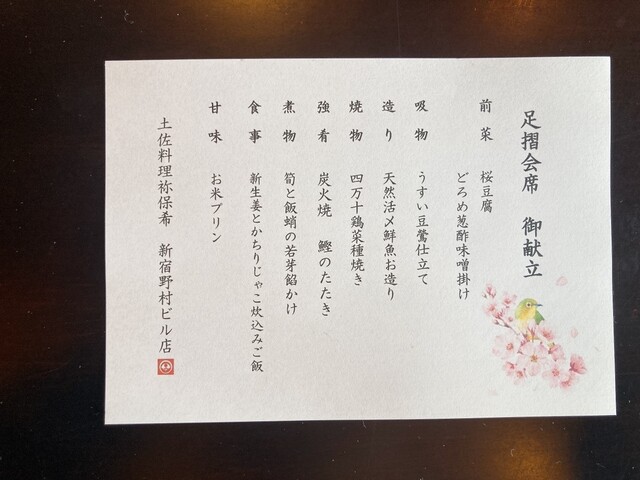 足摺会席　御献立
前菜　桜豆腐
どろめ葱酢味噌掛け
吸物　うすい豆鶯仕立て
造り　天然活〆鮮魚お造り
焼物　四万十鶏菜種焼き
強肴　炭火焼　鰹のたたき
煮物　筍と飯蛸の若芽餡かけ
食事　新生姜とかちりじゃこ炊込みご飯
甘味　お米プリン
土佐料理祢保希　新宿野村ビル店